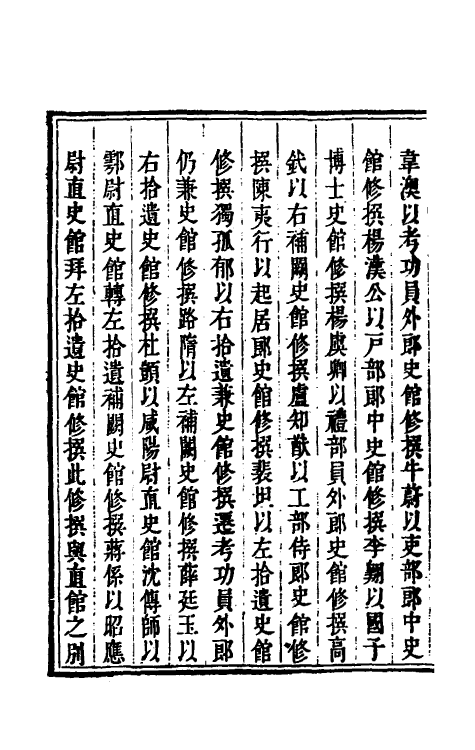 韋澳以考功員外郎史館修撰牛蔚以吏部郎中史
館修撰楊漢公以戸部郎中史館修撰李翺以國子
博士史館修撰楊虞卿以禮部員外郎史館修撰高
釴以右補闕史館修撰盧知猷以工部侍郎史館修
撰陳夷行以起居郎史館修撰裴坦以左拾遺史館
修撰獨孤郁以右拾遺兼史館修撰遷考功員外郎
仍兼史館修撰路隋以左補闕史館修撰薛廷玉以
右拾遺史館修撰杜顗以咸陽尉直史館沈傳師以
鄠尉直史館轉左拾遺補闕史館修撰蔣係以昭應
尉直史館拜左拾遺史館修撰此修撰與直館之別